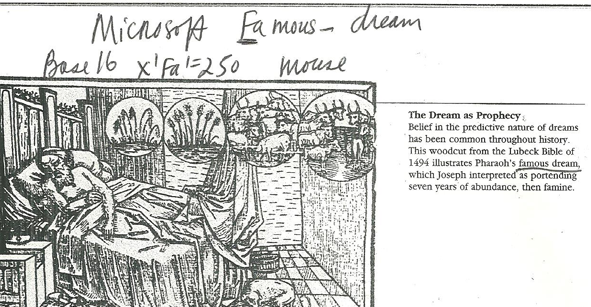 Microsoft Famous - dream
Base 16 X'Fa'=250 mouse
The Dream as Prophecy
Belief in the predictive nature of dreams
has been common throughout history.
This woodcut from the Lubeck Bible of
1494 illustrates Pharaoh's famous dream,
which Joseph interpreted as portending
seven years of abundance, then famine.